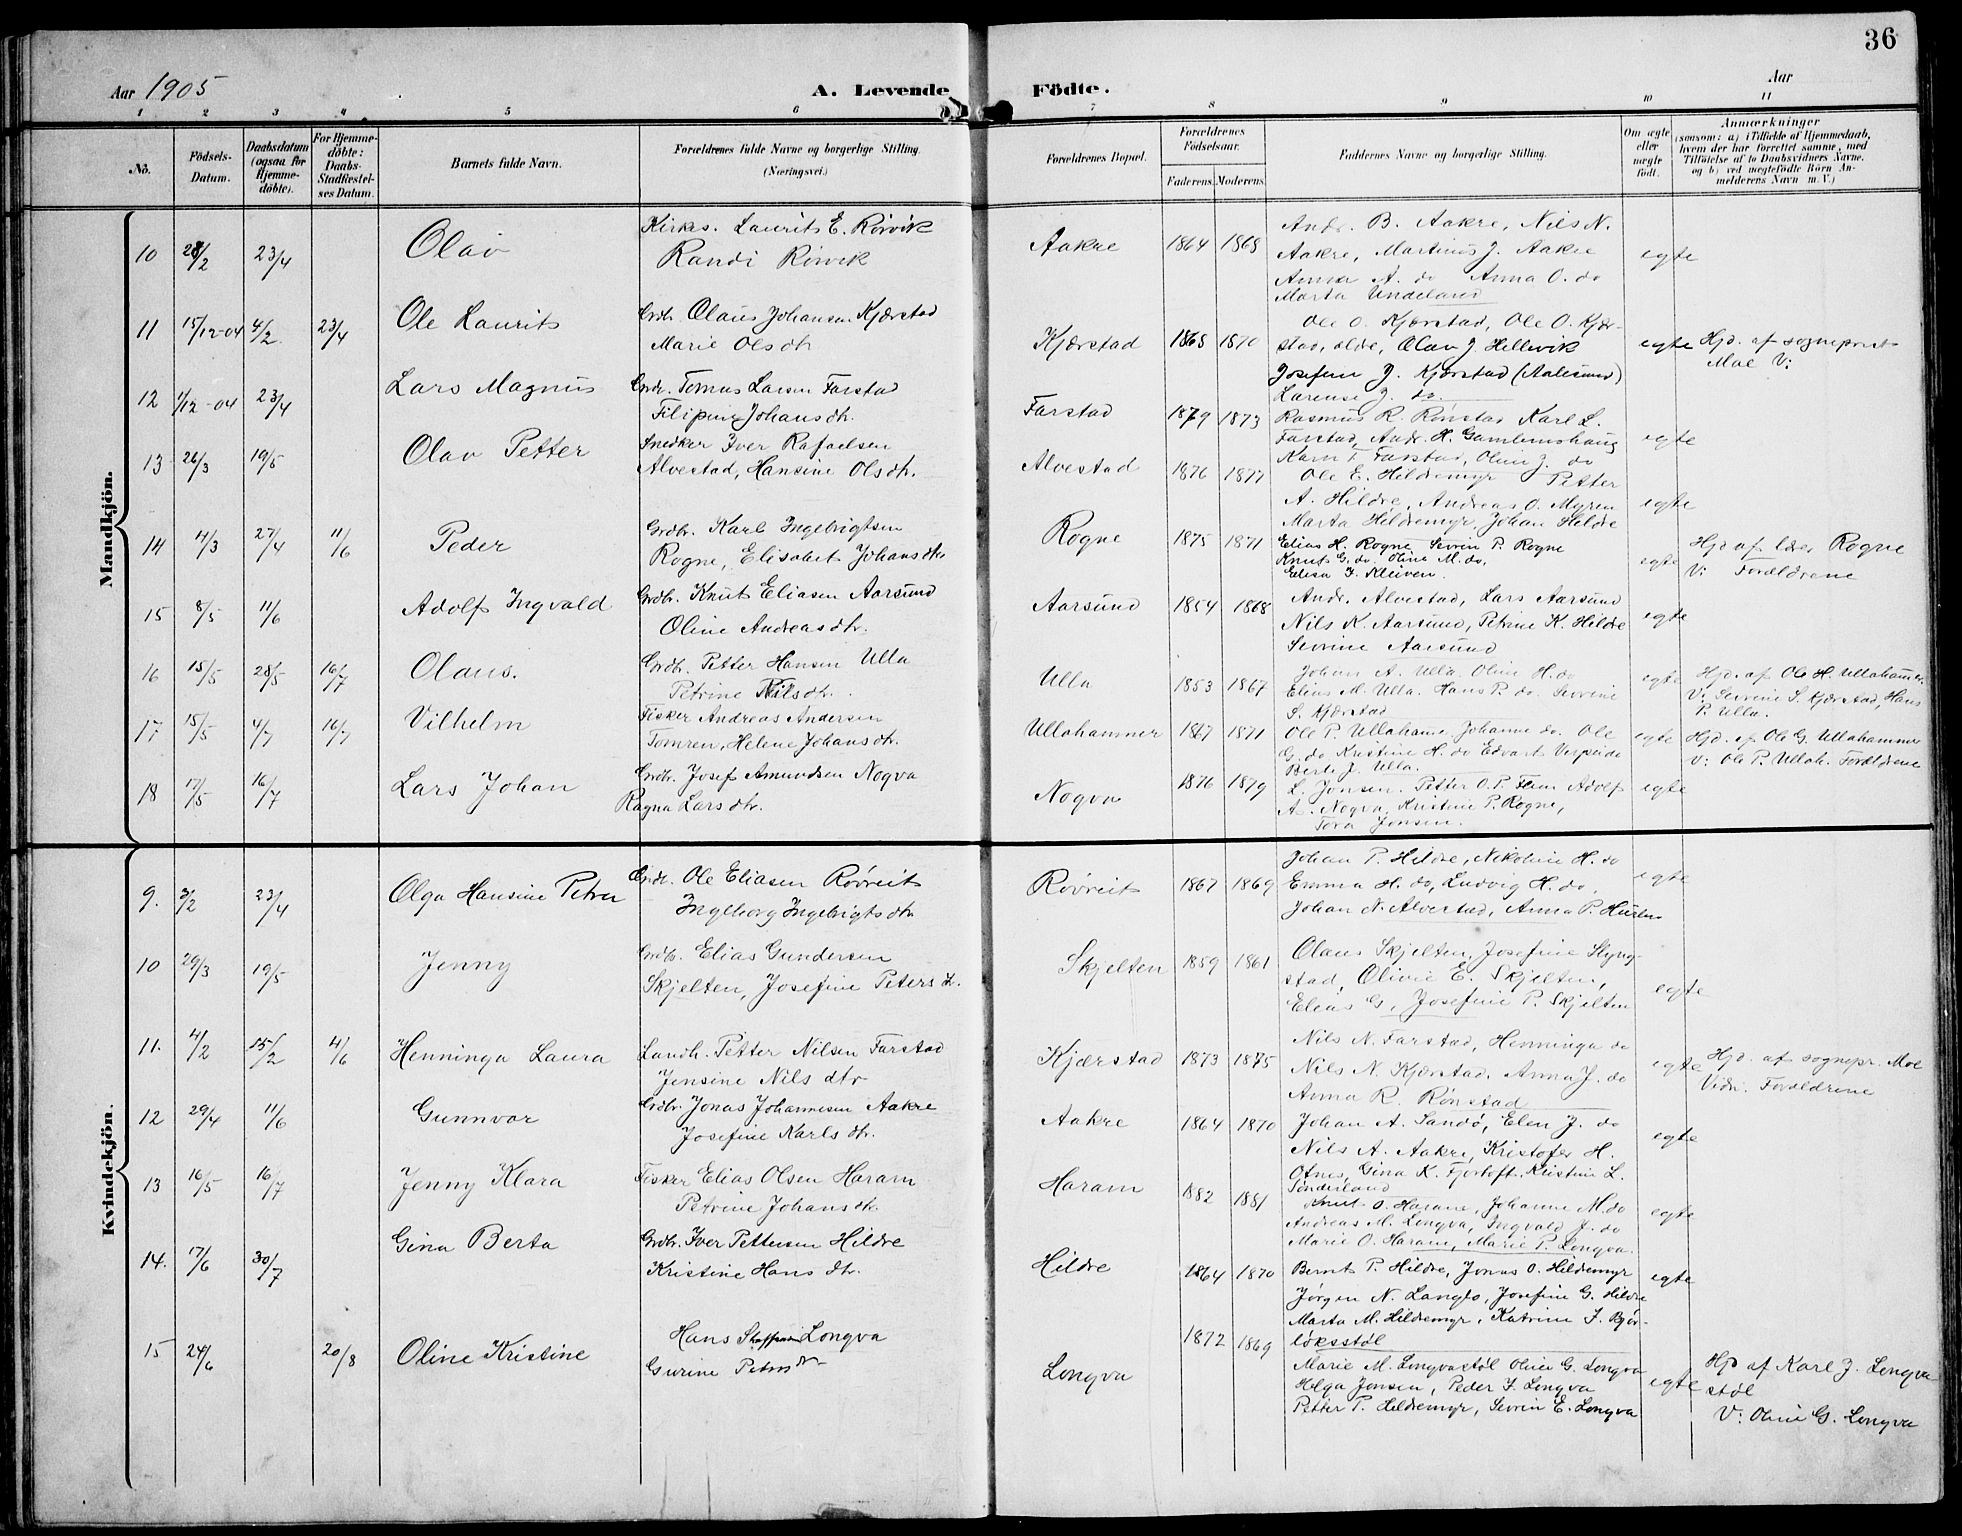 36
Aar 1905
A. Levende Födte.
Aar
1 2 3 4 5 6 7 8 9 10 11
No.
Födsels-Datum.
Daabsdatum (ogsaa for Hjemme-döbte).
For Hjemme-döbte: Daabs-Stadfæstel-ses Datum.
Barnets fulde Navn.
Forældrenes fulde Navne og borgerlige Stilling. (Næringsvei.)
Forældrenes Bopæl.
Forældrenes Födselsaar.
Faderens. Moderens.
Faddernes Navne og borgerlige Stilling.
Om ægte eller uægte födt.
Anmærkninger
(saasom: a) i Tilfælde af Hjemmedaab, hvem der har forrettet samme, med Tilföielse af to Daabsvidners Navne, og b) ved uægtefödte Börn An-melderens Navn m. V.)
Mandkjön.
10 28/2 23/4 Olav Kirkes. Laurits E. Rövik
Randi Rövik Aakre 1864 1868 Andr. B. Aakre, Nils N.
Aakre, Martinus J. Aakre
Anna A. do Anna O. do
Marta Undeland egte
11 15/12-04 4/2 23/4 Ole Laurits Grdbr. Olaus Johansen Kjærstad
Marie Olsdtr. Kjærstad 1868 1870 Ole O. Kjærstad, Ole O. Kjær-
stad, eldre, Olav J. Hellevik
Josefine J. Kjærstad (Aalesund)
Larense J. do. egte Hjd. af sogneprest
Moe V:
12 1/12-04 23/4 Lars Magnus Grdbr. Tomas Larsen Farstad
Filipine Johansdtr. Farstad 1879 1873 Rasmus R. Rönstad Karl L.
Farstad, Andr. H. Gamlemshaug
Karn T. Farstad, Oline J. do egte
13 26/3 19/5 Olav Petter Snedker Iver Rafaelsen
Alvestad, Hansine Olsdtr. Alvestad 1876 1877 Ole E. Hildremyr Petter
A. Hildre, Andreas O. Myren
Marta Hildremyr, Johan Hildre egte
14 11/3 27/4 11/6 Peder Grdbr. Karl Ingebrigtsen
Rogne, Elisabet Johansdtr Rogne 1875 1871 Elias H. Rogne Sevrin P. Rogne
Knut G. do. Oline M. do.
Elisa J. Kleiven. egte Hjd af lær Rogne
V: Forældrene
15 8/5 11/6 Adolf Ingvald Grdbr. Knut Eliasen Aarsund
Oline Andreasdtr. Aarsund 1854 1868 Andr. Alvestad, Lars Aarsund
Nils K. Aarsund, Petrine K. Hildre
Sevrine Aarsund egte
16 15/5 28/5 16/7 Olaus. Grdbr. Petter Hansen Ulla
Petrine Nilsdtr. Ulla 1853 1867 Johan A. Ulla. Oline H. do
Elias M. Ulla. Hans P. do. Sevrine
S. Kjærstad egte Hjd. af Ole H. Ullahammer.
V: Sevrine S. Kjærstad, Hans
P. Ulla.
17 15/5 4/7 16/7 Vilhelm Fisker Andreas Andersen
Tomren, Helene Johansdtr. Ullahammer 1867 1871 Ole P. Ullahamr. Johanne do. Ole
G. do Kristine H. do Edvart Verpeide
Berte J. Ulla. egte Hjd. af Ole G. Ullahammer
V: Ole P. Ullah. Forældrene
18 17/5 16/7 Lars Johan Grdbr. Josef Amundsen Nogva
Ragna Larsdtr. Nogva 1876 1879 L. Jonsen. Petter O. P. Flem Adolf
A. Nogva, Kristine P. Rogne,
Tora Jonsen. egte
Kvindekjön.
9. 3/2 23/4 Olga Hansine Petra Grdbr. Ole Eliasen Rövreit
Ingeborg Ingebrigtsdtr. Rövreit 1867 1869 Johan P. Hildre, Nikoline H. do
Emma H. do, Ludvig H. do.
Johan N. Alvestad, Anna P. Hurlen egte
10 29/3 19/5 Jenny Grdbr. Elias Gundersen
Skjelten, Josefine Petersdtr. Skjelten 1859 1861 Olaus Skjelten, Josefine Slyng-
stad, Olivie E. Skjelten,
Elias G., Josefine P. Skjelten egte
11. 4/2 15/2 4/6 Henninga Laura Landh. Petter Nilsen Farstad
Jensine Nilsdtr Kjærstad 1873 1875 Nils N. Farstad, Henninga do
Nils N. Kjærstad, Anna J. do
Anna R. Rönstad egte Hjd. af sognepr. Moe
Vidn. Forældrene
12 29/4 11/6 Gunnvor Grdbr. Jonas Johannesen Aakre
Josefine Karlsdtr. Aakre 1864 1870 Johan A. Sandö, Elen J. do
Nils A. Aakre, Kristofer H.
Otnes, Gina K. Fjortoft. Kristine L.
Sönderland egte
13 16/5 16/7 Jenny Klara Fisker Elias Olsen Haram
Petrine Johansdtr Haram 1882 1881 Knut O. Haram, Johanne M. do
Andreas M. Longva, Ingvald J. do
Marie O. Haram, Marie P. Longva. egte
14. 17/6 30/7 Gina Berta Grdbr. Iver Pettersen Hildre
Kristine Hansdtr. Hildre 1864 1870 Bernt P. Hildre, Jonas O. Hildremyr
Jörgen N. Langlo, Josefine G. Hildre
Marta M. Hildremyr, Katrine I. Björ-
löksstöl egte
15 24/6 20/8 Oline Kristine Hans Longva
Gurine Petersdtr Longva 1872 1869 Marie M. Longvastöl Oline G. Longva
Helga Jonsen, Peder I. Longva
Petter P. Hildremyr, Sevrin E. Longva egte Hjd af Karl J. Longva
stöl
V: Oline G. Longva